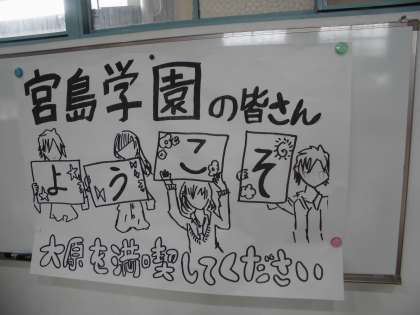 宮島学園の皆さん
ようこそ
大原を満喫してください